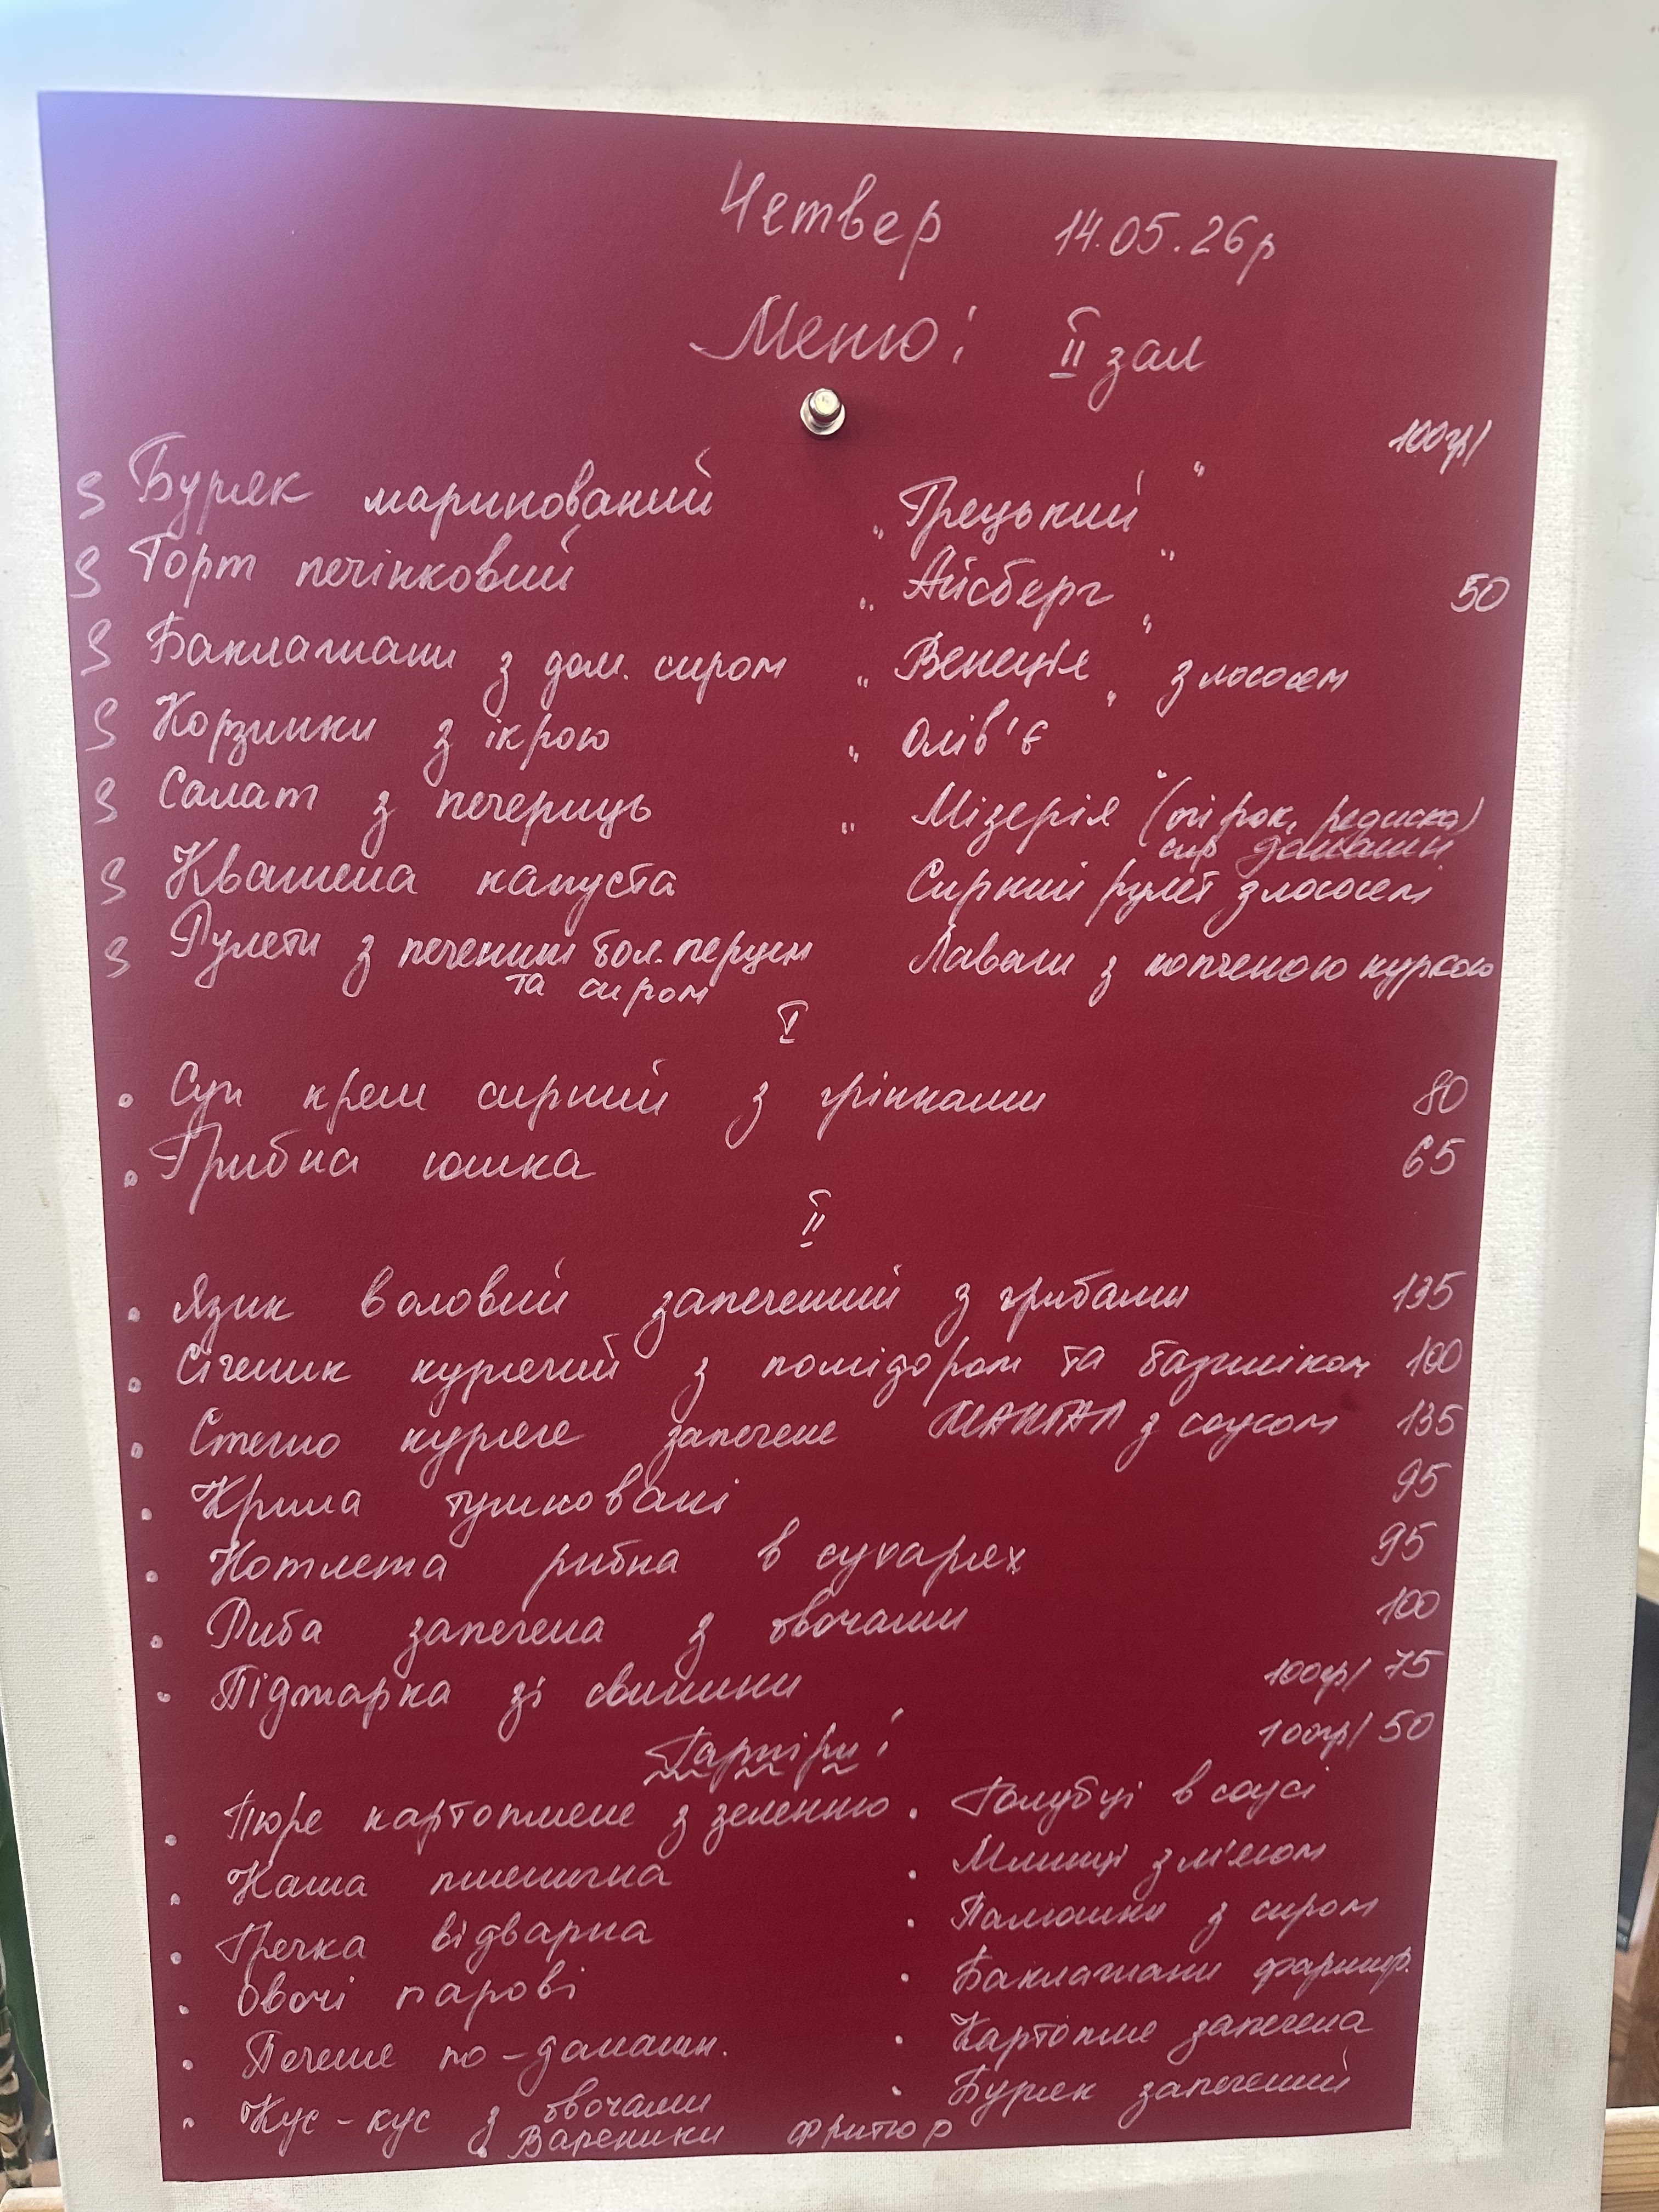 Четвер 14.05.26р
Меню: II зал
100гр/
Буряк маринований "Грецький"
Торт печінковий "Айсберг" 50
Баклажани з дом. сиром "Венеція" з лососем
Корзинки з ікрою "Олів'є"
Салат з печериць "Мізерія" (огірок, редиска)
сир домашн
Квашена капуста Сирний рулет з лососем
Рулети з печеним бол. перцем Лаваш з копченою куркою
та сиром
I
Суп крем сирний з грінками 80
Грибна юшка 65
II
Язик воловий запечений з грибами 135
Січеник курячий з помідором та базиліком 100
Стегно куряче запечене МАНГАЛ з соусом 135
Крила тушковані 95
Котлета рибна в сухарях 95
Риба запечена з овочами 100
Піджарка зі свинини 100гр/ 75
Гарніри: 100гр/ 50
Пюре картопляне з зеленню Голубці в соусі
Каша пшенична Млинці з м'ясом
Гречка відварна Палюшки з сиром
Овочі парові Баклажани фаршир.
Печеня по-домашн. Картопля запечена
Кус-кус з овочами Буряк запечений
Вареники фритюр